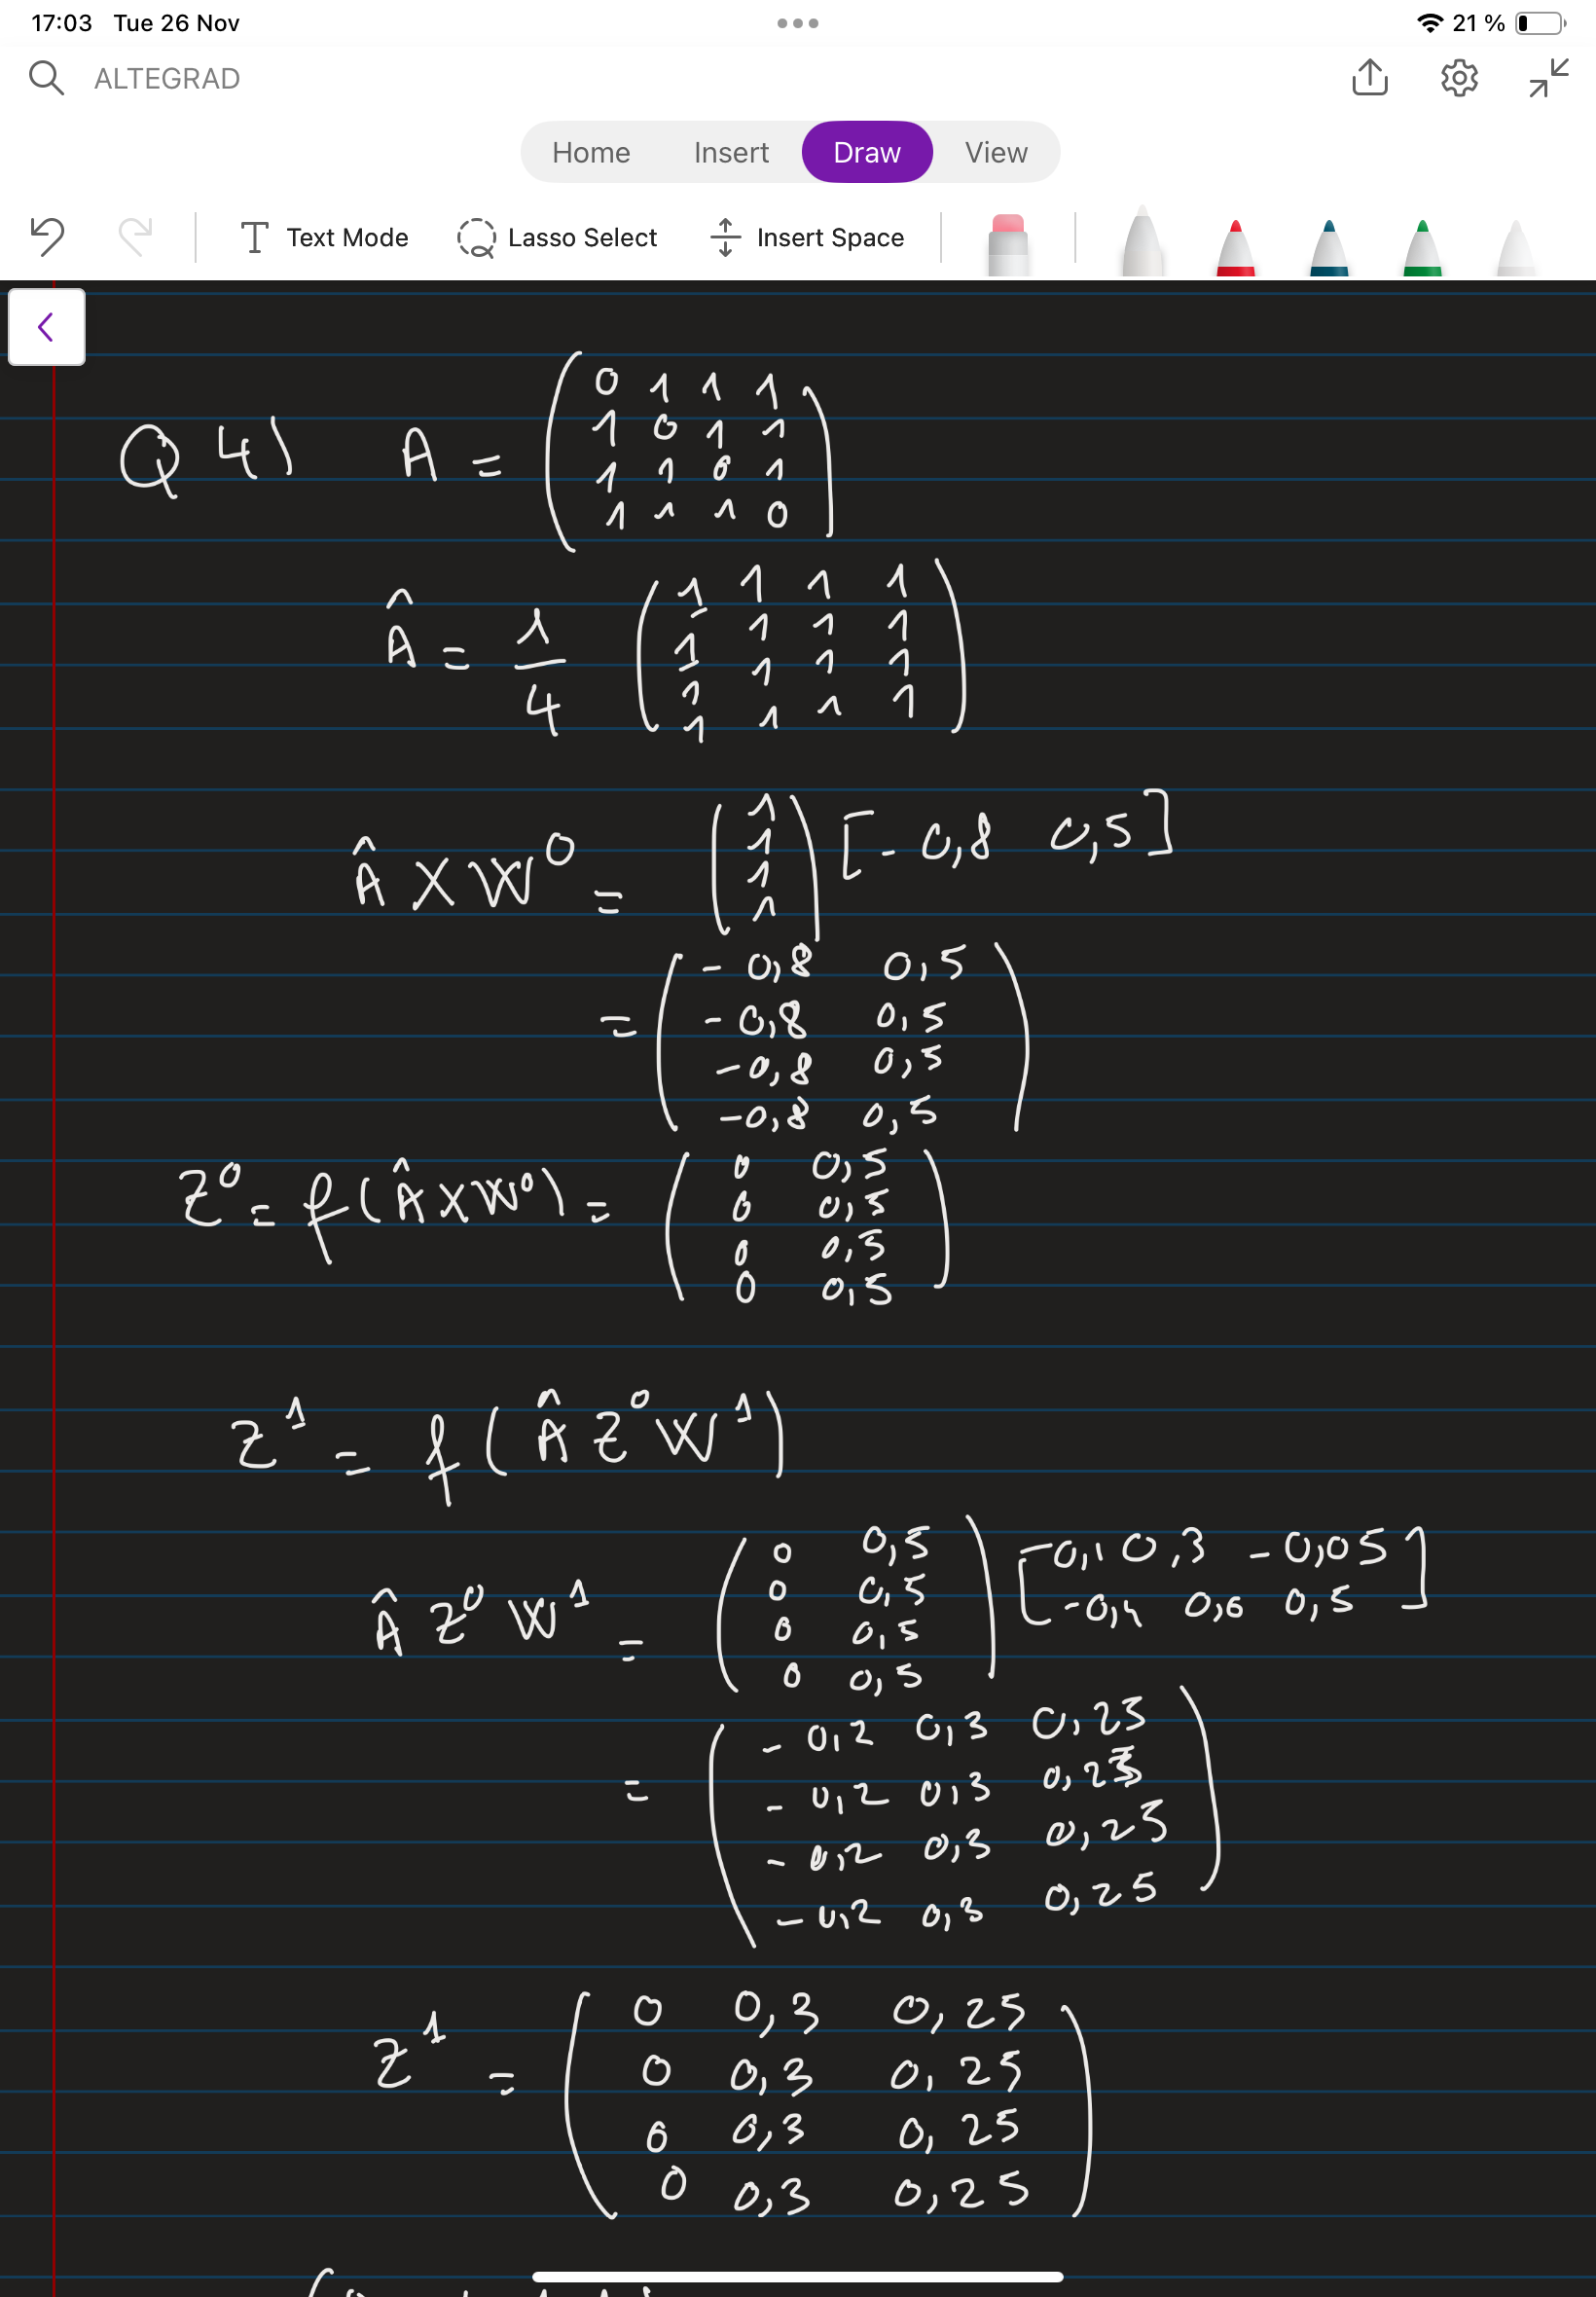 17:03 Tue 26 Nov
21 %
ALTEGRAD
Home Insert Draw View
Text Mode Lasso Select Insert Space
Q 4) A = ( 0 1 1 1
1 0 1 1
1 1 0 1
1 1 1 0 )
Â = 1/4 ( 1 1 1 1
1 1 1 1
1 1 1 1
1 1 1 1 )
Â X W⁰ = ( 1
1
1
1 ) [ - 0,8 0,5 ]
= ( - 0,8 0,5
- 0,8 0,5
- 0,8 0,5
- 0,8 0,5 )
Z⁰ = f ( Â X W⁰ ) = ( 0 0,5
0 0,5
0 0,5
0 0,5 )
Z¹ = f ( Â Z⁰ W¹ )
Â Z⁰ W¹ = ( 0 0,5
0 0,5
0 0,5
0 0,5 ) [ -0,1 0,3 -0,05
-0,4 0,6 0,5 ]
= ( - 0,2 0,3 0,25
- 0,2 0,3 0,25
- 0,2 0,3 0,25
- 0,2 0,3 0,25 )
Z¹ = ( 0 0,3 0,25
0 0,3 0,25
0 0,3 0,25
0 0,3 0,25 )